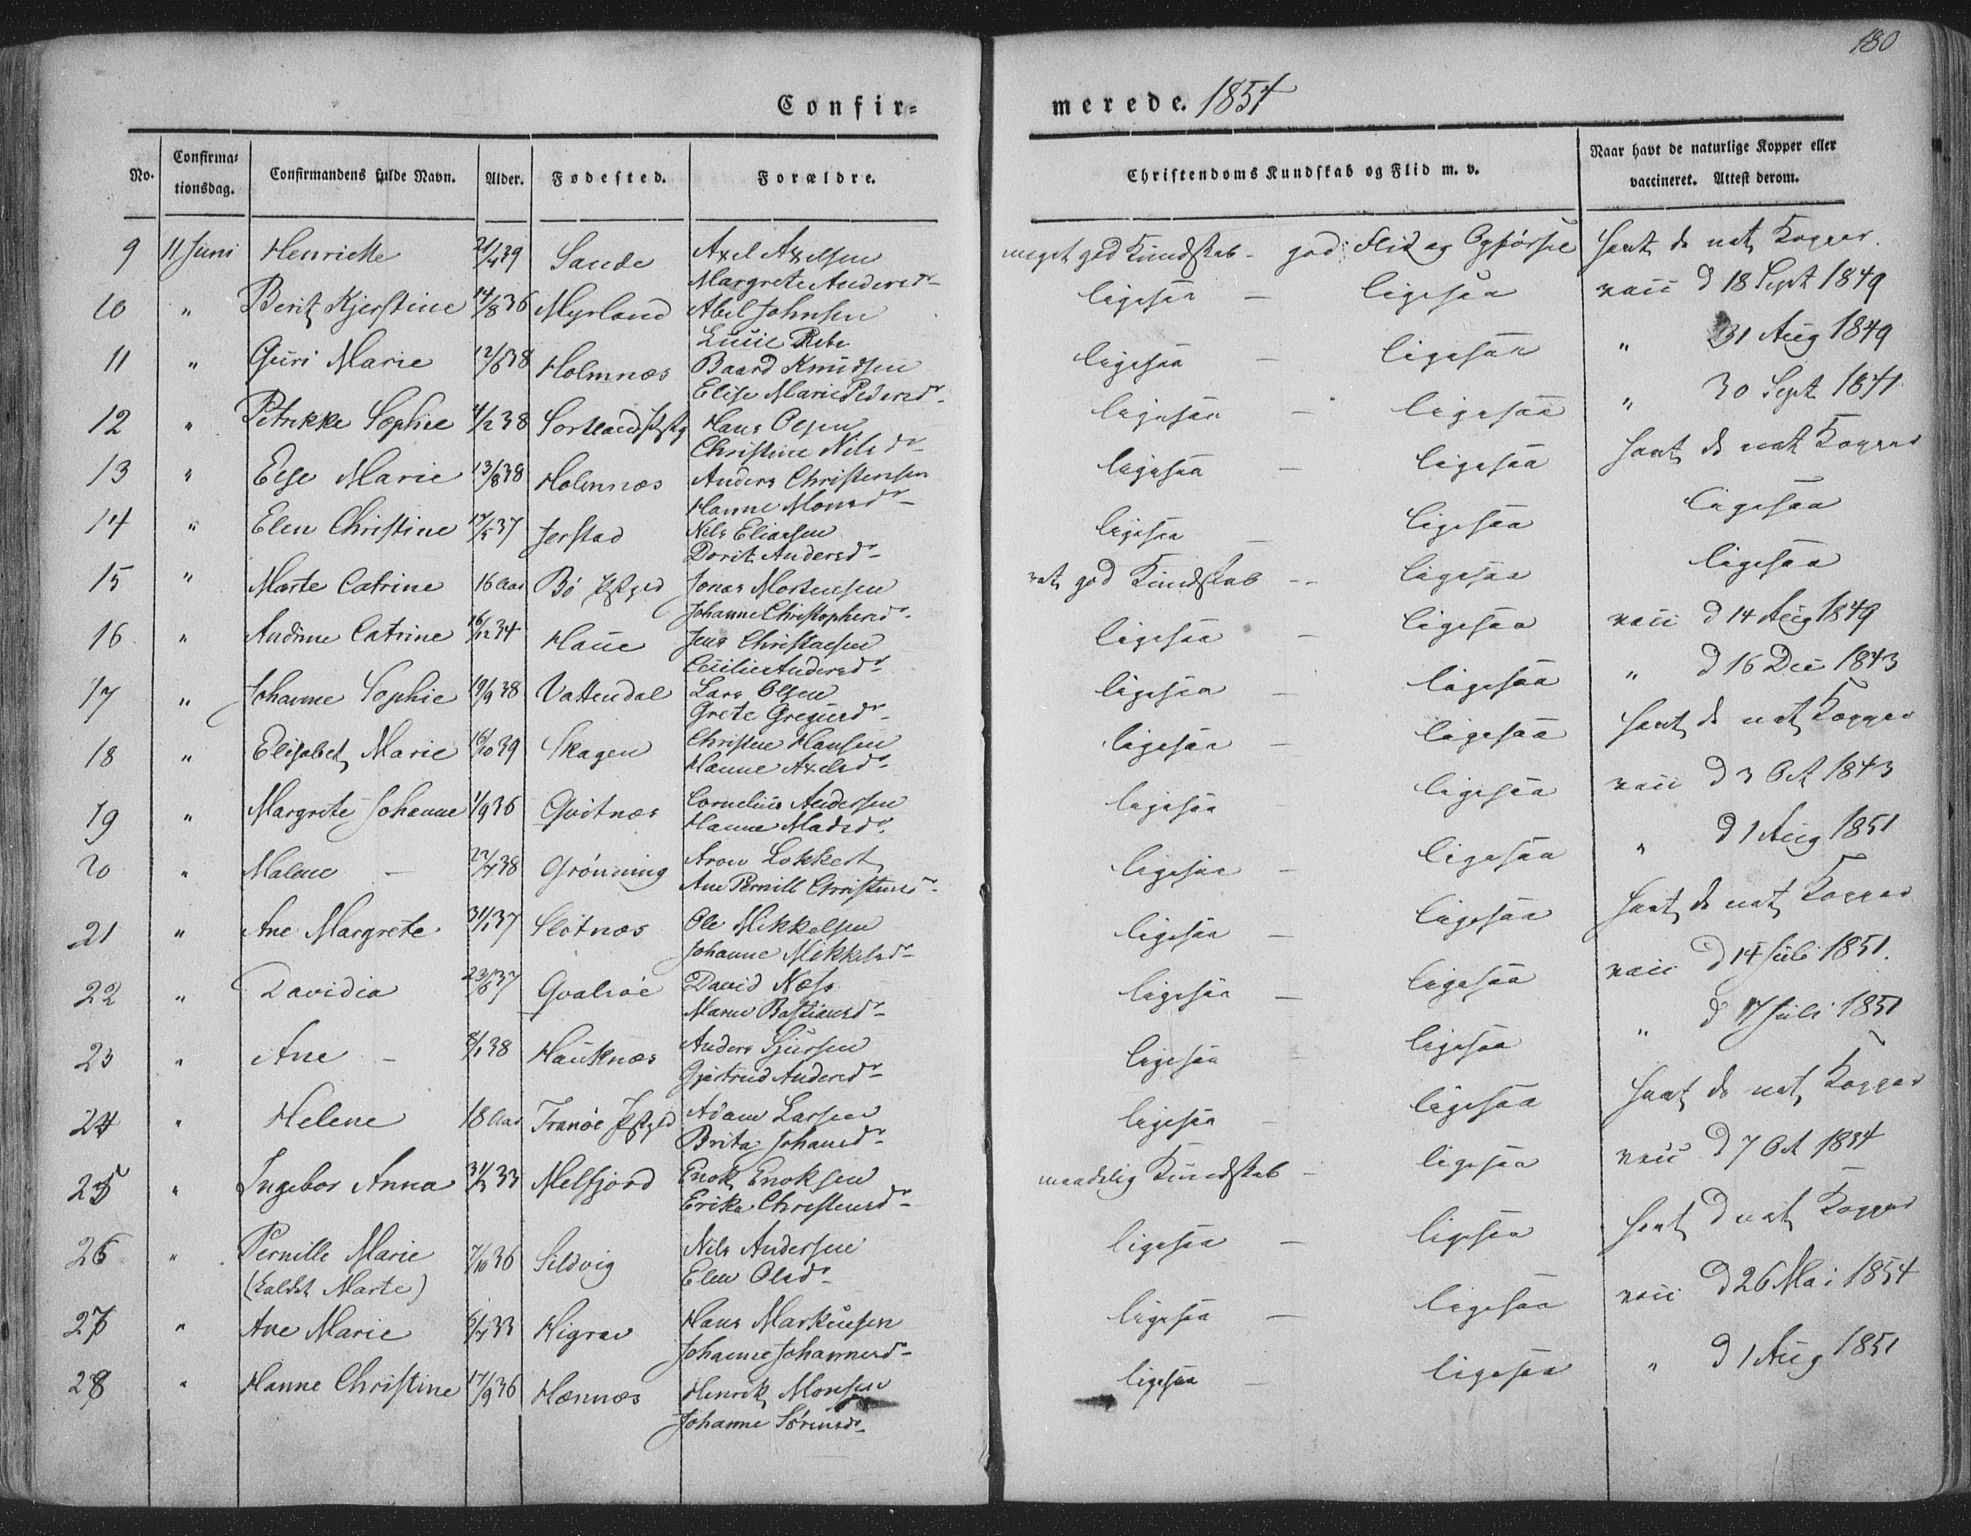 180
Confir-
merede. 1854
No.
Confirma-
tionsdag.
Confirmandens fulde Navn.
Alder.
Fødested.
Forældre.
Christendoms Kundskab og Flid m. v.
Naar havt de naturlige Kopper eller
vaccineret. Attest derom.
9 11 Juni Henriette 21/4 39 Sande Axel Axelsen meget god Kundskab - god Flid og Opførsel havt de nat Kopper.
Margrete Andersd-
10 " Berit Kjerstine 14/8 36 Myrland Abel Johnsen ligesaa - ligesaa vacc d 18 Sept 1849
11 " Guri Marie 12/6 38 Holmnæs Baard Knudsen ligesaa - ligesaa " 31 Aug 1849
Elise Marie Pedersdr-
12 " Petrikke Sophie 4/12 38 Sortland Hans Olsen ligesaa - ligesaa " 30 Sept 1841
Christine Nilsdr-
13 " Else Marie 13/8 38 Holmnæs Anders Christensen ligesaa - ligesaa havt de nat Kopper
Hanne Monsdr-
14 " Elen Christine 17/5 37 Jerstad Nils Eliassen ligesaa - ligesaa ligesaa
Dorit Andersdr-
15 " Marte Catrine 16 Aar Bø Jonas Mortensen god Kundskab - ligesaa ligesaa
Johanne Christophersdr-
16 " Andrine Catrine 16/12 34 Haue Jens Christensen ligesaa - ligesaa vacc d 14 Aug 1849
Cecilie Andersdr-
17 " Johanne Sophie 19/9 38 Vattendal Lars Olsen ligesaa - ligesaa " d 16 Dec 1843
Grete Gregersdr-
18 " Elisabet Marie 16/10 39 Skagen Christen Hansen ligesaa - ligesaa havt de nat Kopper
Hanne Axelsdr-
19 " Margrete Johanne 1/9 36 Qvitnæs Cornelius Andersen ligesaa ligesaa vacc d 3 Oct 1843
Hanne Madsdr-
20 " Malene - 22/7 38 Grønning Aron Lokkert ligesaa - ligesaa " d 1 Aug 1851
Ane Pernill Christensdr-
21 " Ane Margrete 31/1 37 Slotnæs Ole Mikkelsen ligesaa - ligesaa havt de nat Kopper
Johanne Mikkelsdr-
22 " Davidia 23/6 37 Qvalsøe David Næss ligesaa - ligesaa vacc d 14 Juli 1851.
Maren Bastiansdr-
23 " Ane - 8/1 38 Hauknæs Anders Sjursen ligesaa - ligesaa " d 17 Juli 1851
Gjertrud Andersdr-
24 " Helene 18 Aar Tranøe Adam Larsen ligesaa - ligesaa havt de nat Kopper
Brita Johansdr-
25 " Ingebor Anna 33 Melfjord Enok Enoksen maadelig Kundskab - ligesaa vacc d 7 Oct 1834
Erika Christensdr-
26 " Pernille Marie 7/10 36 Sildvig Nils Andersen ligesaa - ligesaa havt d nat Kopper
(kaldet Marte) Elen Olsdr-
27 " Ane Marie 6/7 33 Higrav Hans Markussen ligesaa - ligesaa vacc d 26 Mai 1854
Johanne Johannesdr-
28 " Hanne Christine 17/9 36 Hænnæs Henrik Monsen ligesaa - ligesaa " d 1 Aug 1851
Johanne Sørensdr-